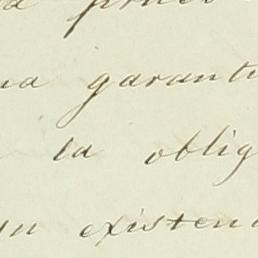 na garanti
la oblig
un existen